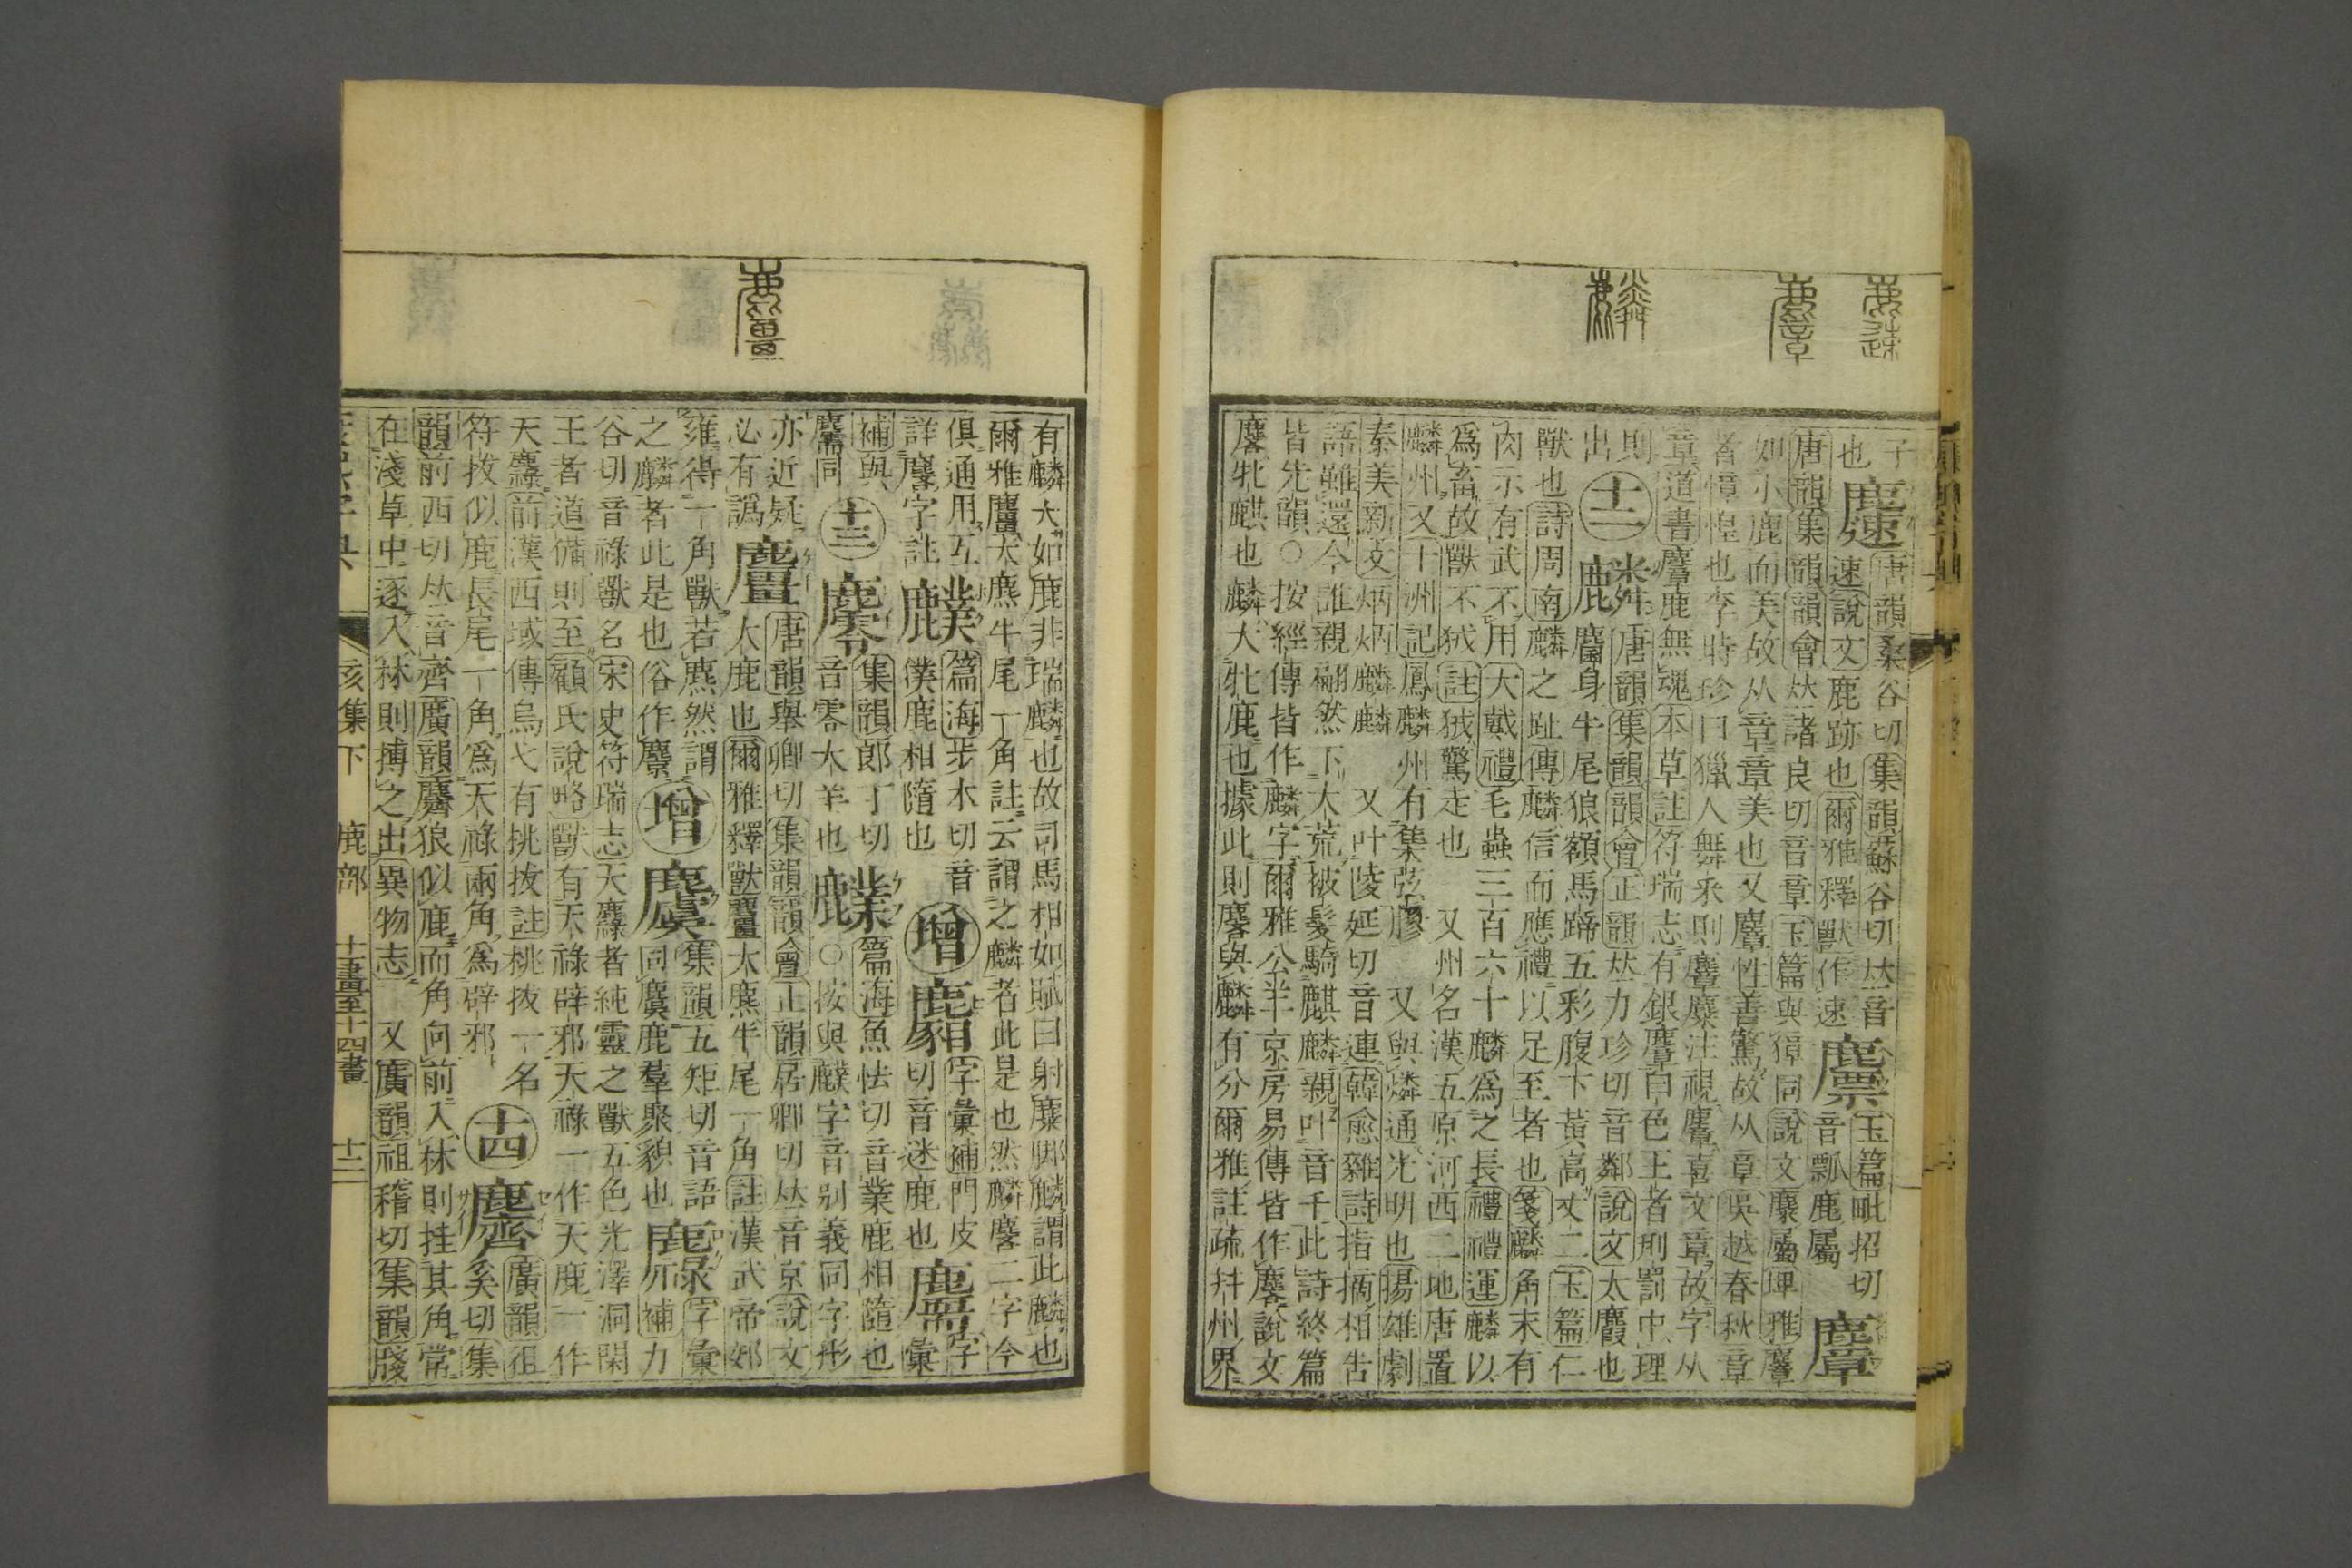 子
也䴝速說文鹿跡也爾雅釋獸作速
唐韻桑谷切集韻蘇谷切𠀤音
麃音瓢鹿屬
玉篇毗招切
麞
唐韻集韻韻會𠀤諸良切音章玉篇與獐同說文麋屬埤雅麞
如小鹿而美故从章章美也又麞性善驚故从章吳越春秋章
者慞惶也李時珍曰獵人舞采則麞麋注視麞喜文章故字从
章道書麞鹿無魂本草註符瑞志有銀麞白色王者刑罰中理
則
出
十二
麟唐韻集韻韻會正韻𠀤力珍切音鄰說文大麚也
麕身牛尾狼額馬蹄五彩腹下黃高丈二玉篇仁
獸也詩周南麟之趾傳麟信而應禮以足至者也箋麟角末有
肉示有武不用大戴禮毛蟲三百六十麟爲之長禮禮運麟以
爲畜故獸不狘註狘驚走也 又州名漢五原河西二地唐置
麟州又十洲記鳳麟州有集弦膠 又與燐通光明也揚雄劇
秦美新文炳炳麟麟 又叶陵延切音連韓愈雜詩指摘相告
語雖還今誰親翩然下大荒被髮騎麒麟親叶音千此詩終篇
皆先韻○按經傳皆作麒麟字爾雅公羊京房易傳皆作麐說文
麐牝麒也麟大牝鹿也據此則麐與麟有分爾雅註疏幷州界
有麟大如鹿非瑞麟也故司馬相如賦曰射麋脚麟謂此麟也
爾雅麠大麃牛尾一角註云謂之麟者此是也然麟麐二字今
俱通用互
詳麐字註
䴆篇海步木切音
僕鹿相隨也
增
字彙補門皮
切音迷鹿也
字
彙
補與
麢同
十三
麢集韻郎丁切
音零大羊也
篇海魚怯切音業鹿相隨也
○按與䴆字音别義同字形
亦近疑
必有譌
麠唐韻舉卿切集韻韻會正韻居卿切𠀤音京說文
大鹿也爾雅釋獸麠大麃牛尾一角註漢武帝郊
雍得一角獸若麃然謂
之麟者此是也俗作麖
增
麌集韻五矩切音語
同麌鹿羣聚貌也
字彙
補力
谷切音祿獸名宋史符瑞志天麤者純靈之獸五色光澤洞閑
王者道備則至顧氏說略獸有天祿辟邪天祿一作天鹿一作
天麤前漢西域傳烏弋有挑拔註桃拔一名
符拔似鹿長尾一角爲天祿兩角爲辟邪
十四
麡廣韻徂
奚切集
韻前西切𠀤音齊廣韻麡狼似鹿而角向前入林則挂其角常
在淺草中逐入林則搏之出異物志 又廣韻祖稽切集韻牋
亥集下 鹿部 十一畫至十四畫 十二